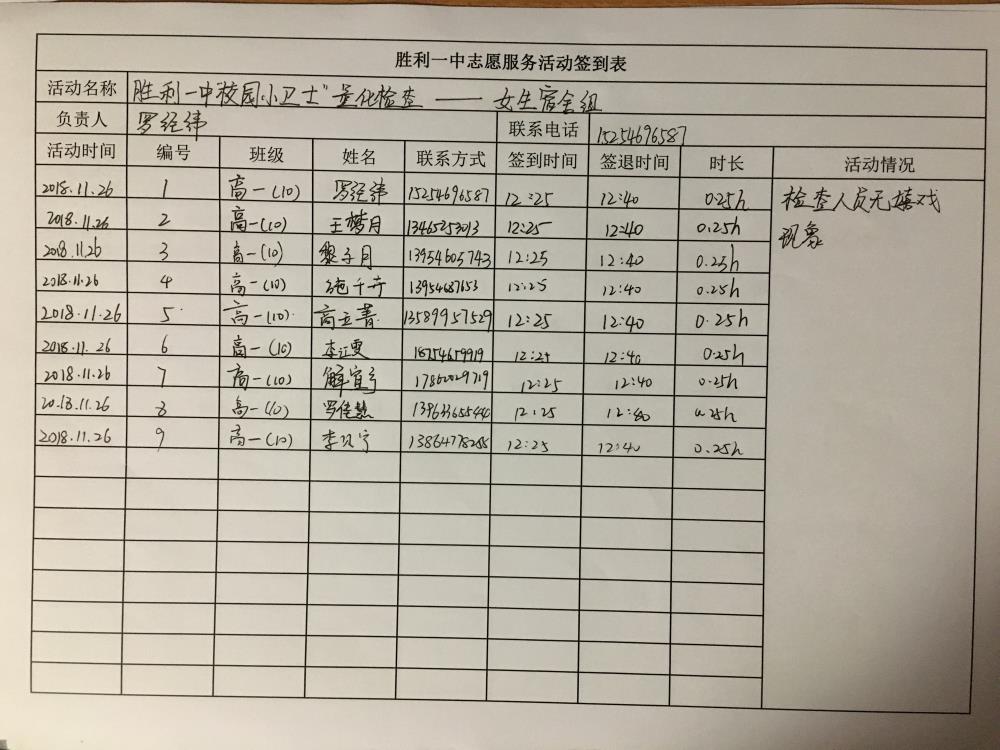 胜利一中志愿服务活动签到表
活动名称 胜利一中校园小卫士"量化检查 —— 女生宿舍组
负责人 罗经纬 联系电话 15254696587
活动时间 编号 班级 姓名 联系方式 签到时间 签退时间 时长 活动情况
2018.11.26 1 高一(10) 罗经纬 15254696587 12:25 12:40 0.25h 检查人员无嬉戏
2018.11.26 2 高一(10) 王梦月 13465253013 12:25 12:40 0.25h 现象
2018.11.26 3 高一(10) 黎子月 13954605743 12:25 12:40 0.25h
2018.11.26 4 高一(10) 千卉 13954687653 12:25 12:40 0.25h
2018.11.26 5 高一(10) 高立菁 13589957529 12:25 12:40 0.25h
2018.11.26 6 高一(10) 李江雯 18754659919 12:25 12:40 0.25h
2018.11.26 7 高一(10) 解宜 17862029719 12:25 12:40 0.25h
2018.11.26 8 高一(10) 罗佳慧 13963365544 12:25 12:40 0.25h
2018.11.26 9 高一(10) 李贝宁 13864778255 12:25 12:40 0.25h